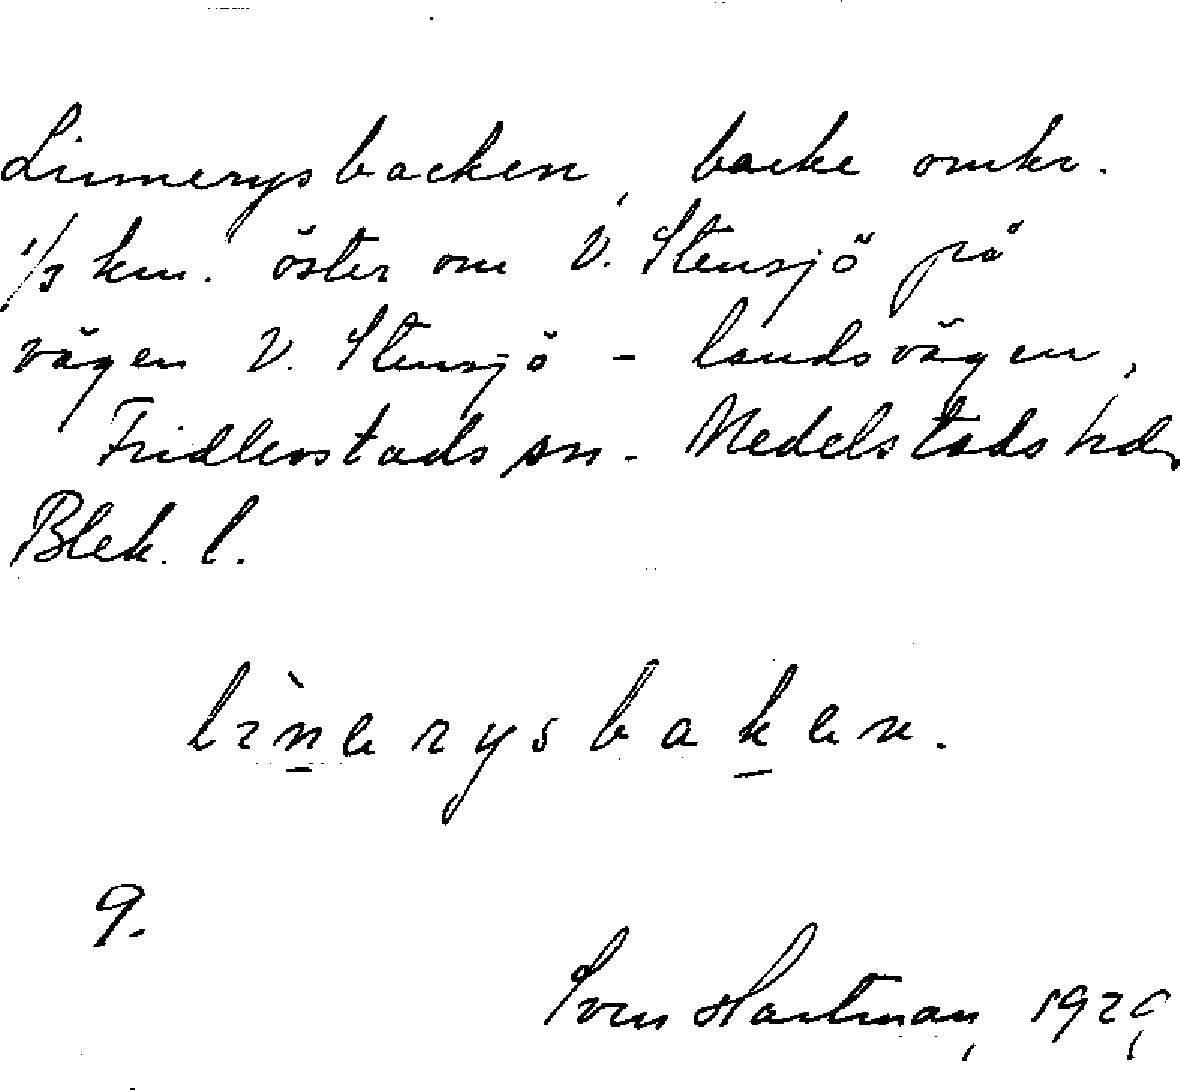 Linnerysbacken, backe omkr.
1/3 km. öster om V. Stensjö på
vägen V. Stensjö - landsvägen,
Fridlevstads sn. Medelstads hd,
Blek. l.
lìnerysbaken.
9.
Sven Hartman, 1929